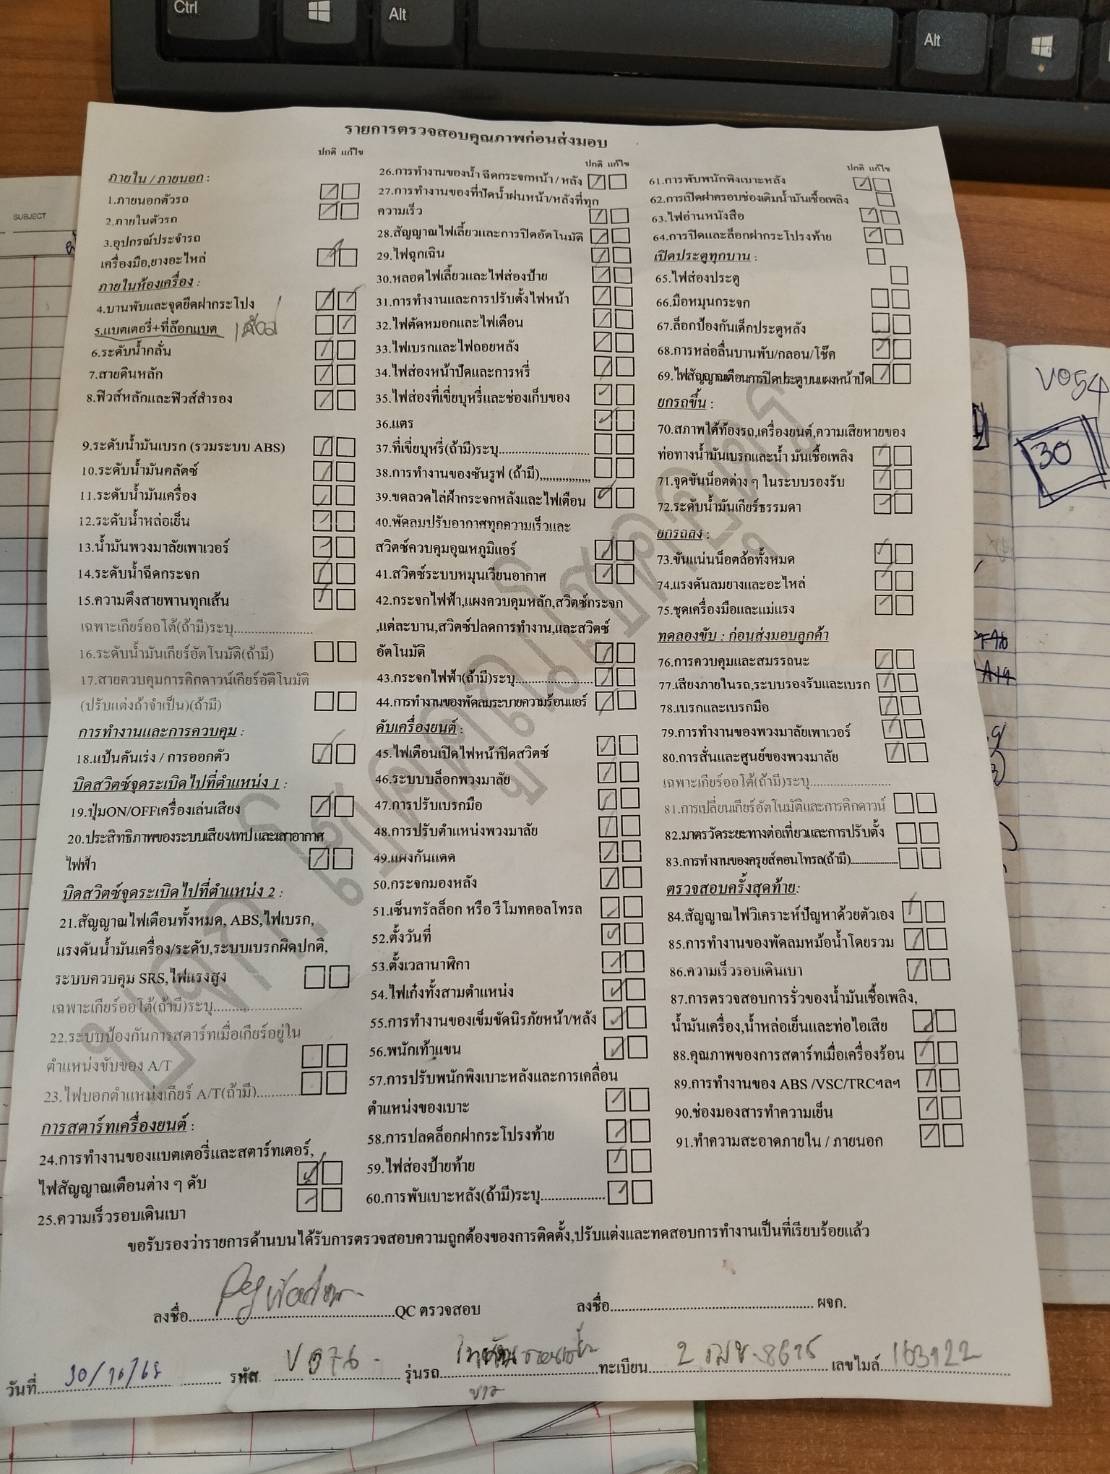 Ctrl
Alt
Alt
SUBJECT
รายการตรวจสอบคุณภาพก่อนส่งมอบ
ปกติ แก้ไข
ภายใน / ภายนอก :
1.ภายนอกตัวรถ
2.ภายในตัวรถ
3.อุปกรณ์ประจำรถ
เครื่องมือ,ยางอะไหล่
ภายในห้องเครื่อง :
4.บานพับและจุดยึดฝากระโปง
5.แบตเตอรี่+ที่ล๊อกแบต
6.ระดับน้ำกลั่น
7.สายดินหลัก
8.ฟิวส์หลักและฟิวส์สำรอง
9.ระดับน้ำมันเบรก (รวมระบบ ABS)
10.ระดับน้ำมันคลัตช์
11.ระดับน้ำมันเครื่อง
12.ระดับน้ำหล่อเย็น
13.น้ำมันพวงมาลัยเพาเวอร์
14.ระดับน้ำฉีดกระจก
15.ความตึงสายพานทุกเส้น
เฉพาะเกียร์ออโต้(ถ้ามี)ระบุ....................
16.ระดับน้ำมันเกียร์อัตโนมัติ(ถ้ามี)
17.สายควบคุมการคิกดาวน์เกียร์อัติโนมัติ
(ปรับแต่งถ้าจำเป็น)(ถ้ามี)
การทำงานและการควบคุม :
18.แป้นคันเร่ง / การออกตัว
บิดสวิตช์จุดระเบิดไปที่ตำแหน่ง 1 :
19.ปุ่มON/OFFเครื่องเล่นเสียง
20.ประสิทธิภาพของระบบเสียง/เทป และเสาอากาศ
ไฟฟ้า
บิดสวิตช์จุดระเบิดไปที่ตำแหน่ง 2 :
21.สัญญาณไฟเตือนทั้งหมด, ABS,ไฟเบรก,
แรงดันน้ำมันเครื่อง/ระดับ,ระบบเบรกผิดปกติ,
ระบบควบคุม SRS,ไฟแรงสูง
เฉพาะเกียร์ออโต้(ถ้ามี)ระบุ....................
22.ระบบป้องกันการสตาร์ทเมื่อเกียร์อยู่ใน
ตำแหน่งขับของ A/T
23.ไฟบอกตำแหน่งเกียร์ A/T(ถ้ามี)..........
การสตาร์ทเครื่องยนต์ :
24.การทำงานของแบตเตอรี่และสตาร์ทเตอร์,
ไฟสัญญาณเตือนต่าง ๆ ดับ
25.ความเร็วรอบเดินเบา
ปกติ แก้ไข
26.การทำงานของน้ำ ฉีดกระจกหน้า / หลัง
27.การทำงานของที่ปัดน้ำฝนหน้า/หลังที่ทุก
ความเร็ว
28.สัญญาณไฟเลี้ยวและการปิดอัตโนมัติ
29.ไฟฉุกเฉิน
30.หลอดไฟเลี้ยวและไฟส่องป้าย
31.การทำงานและการปรับตั้งไฟหน้า
32.ไฟตัดหมอกและไฟเตือน
33.ไฟเบรกและไฟถอยหลัง
34.ไฟส่องหน้าปัดและการหรี่
35.ไฟส่องที่เขี่ยบุหรี่และช่องเก็บของ
36.แตร
37.ที่เขี่ยบุหรี่(ถ้ามี)ระบุ......................
38.การทำงานของซันรูฟ (ถ้ามี)..............
39.ขดลวดไล่ฝ้ากระจกหลังและไฟเตือน
40.พัดลมปรับอากาศทุกความเร็วและ
สวิตช์ควบคุมอุณหภูมิแอร์
41.สวิตช์ระบบหมุนเวียนอากาศ
42.กระจกไฟฟ้า,แผงควบคุมหลัก,สวิตช์กระจก
,แต่ละบาน,สวิตช์ปลดการทำงาน,และสวิตช์
อัตโนมัติ
43.กระจกไฟฟ้า(ถ้ามี)ระบุ....................
44.การทำงานของพัดลมระบายความร้อนแอร์
ดับเครื่องยนต์ :
45.ไฟเตือนเปิดไฟหน้าปิดสวิตช์
46.ระบบบล็อกพวงมาลัย
47.การปรับเบรกมือ
48.การปรับตำแหน่งพวงมาลัย
49.แผงกันแดด
50.กระจกมองหลัง
51.เซ็นทรัลล็อก หรือ รีโมทคอลโทรล
52.ตั้งวันที่
53.ตั้งเวลานาฬิกา
54.ไฟเก๋งทั้งสามตำแหน่ง
55.การทำงานของเข็มขัดนิรภัยหน้า/หลัง
56.พนักเท้าแขน
57.การปรับพนักพิงเบาะหลังและการเคลื่อน
ตำแหน่งของเบาะ
58.การปลดล็อกฝากระโปรงท้าย
59.ไฟส่องป้ายท้าย
60.การพับเบาะหลัง(ถ้ามี)ระบุ................
ปกติ แก้ไข
61.การพับพนักพิงเบาะหลัง
62.การเปิดฝาครอบช่องเติมน้ำมันเชื้อเพลิง
63.ไฟอ่านหนังสือ
64.การปิดและล็อกฝากระโปรงท้าย
เปิดประตูทุกบาน :
65.ไฟส่องประตู
66.มือหมุนกระจก
67.ล็อกป้องกันเด็กประตูหลัง
68.การหล่อลื่นบานพับ/กลอน/โช๊ค
69.ไฟสัญญาณเตือนการปิดประตูบนแผงหน้าปัด
ยกรถขึ้น :
70.สภาพใต้ท้องรถ,เครื่องยนต์,ความเสียหายของ
ท่อทางน้ำมันเบรกและน้ำ มันเชื้อเพลิง
71.จุดขันน็อตต่าง ๆ ในระบบรองรับ
72.ระดับน้ำมันเกียร์ธรรมดา
ยกรถลง :
73.ขันแน่นน็อตล้อทั้งหมด
74.แรงดันลมยางและอะไหล่
75.ชุดเครื่องมือและแม่แรง
ทดลองขับ : ก่อนส่งมอบลูกค้า
76.การควบคุมและสมรรถนะ
77.เสียงภายในรถ,ระบบรองรับและเบรก
78.เบรกและเบรกมือ
79.การทำงานของพวงมาลัยเพาเวอร์
80.การสั่นและศูนย์ของพวงมาลัย
เฉพาะเกียร์ออโต้(ถ้ามี)ระบุ....................
81.การเปลี่ยนเกียร์อัตโนมัติและการคิกดาวน์
82.มาตรวัดระยะทางต่อเที่ยวและการปรับตั้ง
83.การทำงานของครุยส์คอนโทรล(ถ้ามี)............
ตรวจสอบครั้งสุดท้าย:
84.สัญญาณไฟวิเคราะห์ปัญหาด้วยตัวเอง
85.การทำงานของพัดลมหม้อน้ำโดยรวม
86.ความเร็วรอบเดินเบา
87.การตรวจสอบการรั่วของน้ำมันเชื้อเพลิง,
น้ำมันเครื่อง,น้ำหล่อเย็นและท่อไอเสีย
88.คุณภาพของการสตาร์ทเมื่อเครื่องร้อน
89.การทำงานของ ABS /VSC/TRCฯลฯ
90.ช่องมองสารทำความเย็น
91.ทำความสะอาดภายใน / ภายนอก
ขอรับรองว่ารายการด้านบนได้รับการตรวจสอบความถูกต้องของการติดตั้ง,ปรับแต่งและทดสอบการทำงานเป็นที่เรียบร้อยแล้ว
ลงชื่อ....................QC ตรวจสอบ
ลงชื่อ.................... ผจก.
วันที่ 30/10/68 รหัส V076 รุ่นรถ ขาว ทะเบียน 2 ฒช-8695 เลขไมล์ 163922
V054
30